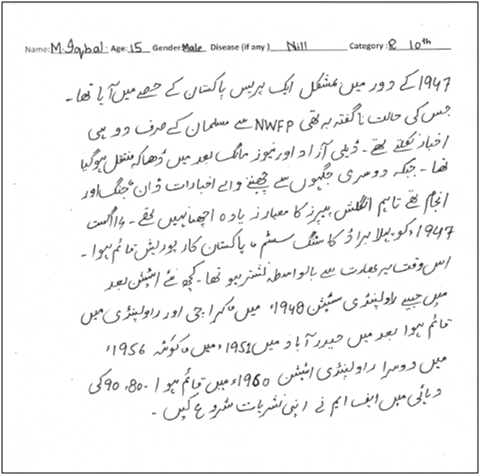 Name: M.Iqbal Age: 15 Gender Male Disease (if any) Nill Category: R 10th
1947 کے دور میں بمشکل ایک پریس پاکستان کے حصے میں آیا تھا۔
جس کی حالت ناگفتہ بہ تھی NWFP سے مسلمان کے صرف دو ہی
اخبار نکلتے تھے۔ ڈیلی آزاد اور نیوز مانگ بعد میں ڈھاکہ منتقل ہوگیا
تھا۔ جبکہ دوسری جگہوں سے چھپنے والے اخبارات ڈان، جنگ اور
انجام تھے تاہم انگلش پیپرز کا معیار زیادہ اچھا نہیں تھے۔ 14 اگست
1947ء کو پہلا براڈ کاسٹنگ سسٹم، پاکستان کارپوریشن قائم ہوا۔
اس وقت یہ بھارت سے بالواسطہ نشر ہو تھا۔ کچھ نئے اسٹیشن بعد
میں جیسے راولپنڈی سٹیشن 1948ء میں، کراچی اور راولپنڈی میں
قائم ہوا بعد میں حیدر آباد میں 1951ء میں، کوئٹہ 1956ء
میں دوسرا راولپنڈی اسٹیشن 1960ء میں قائم ہوا۔ 80، 90 کی
دہائی میں ایف ایم نے اپنی نشریات شروع کیں۔